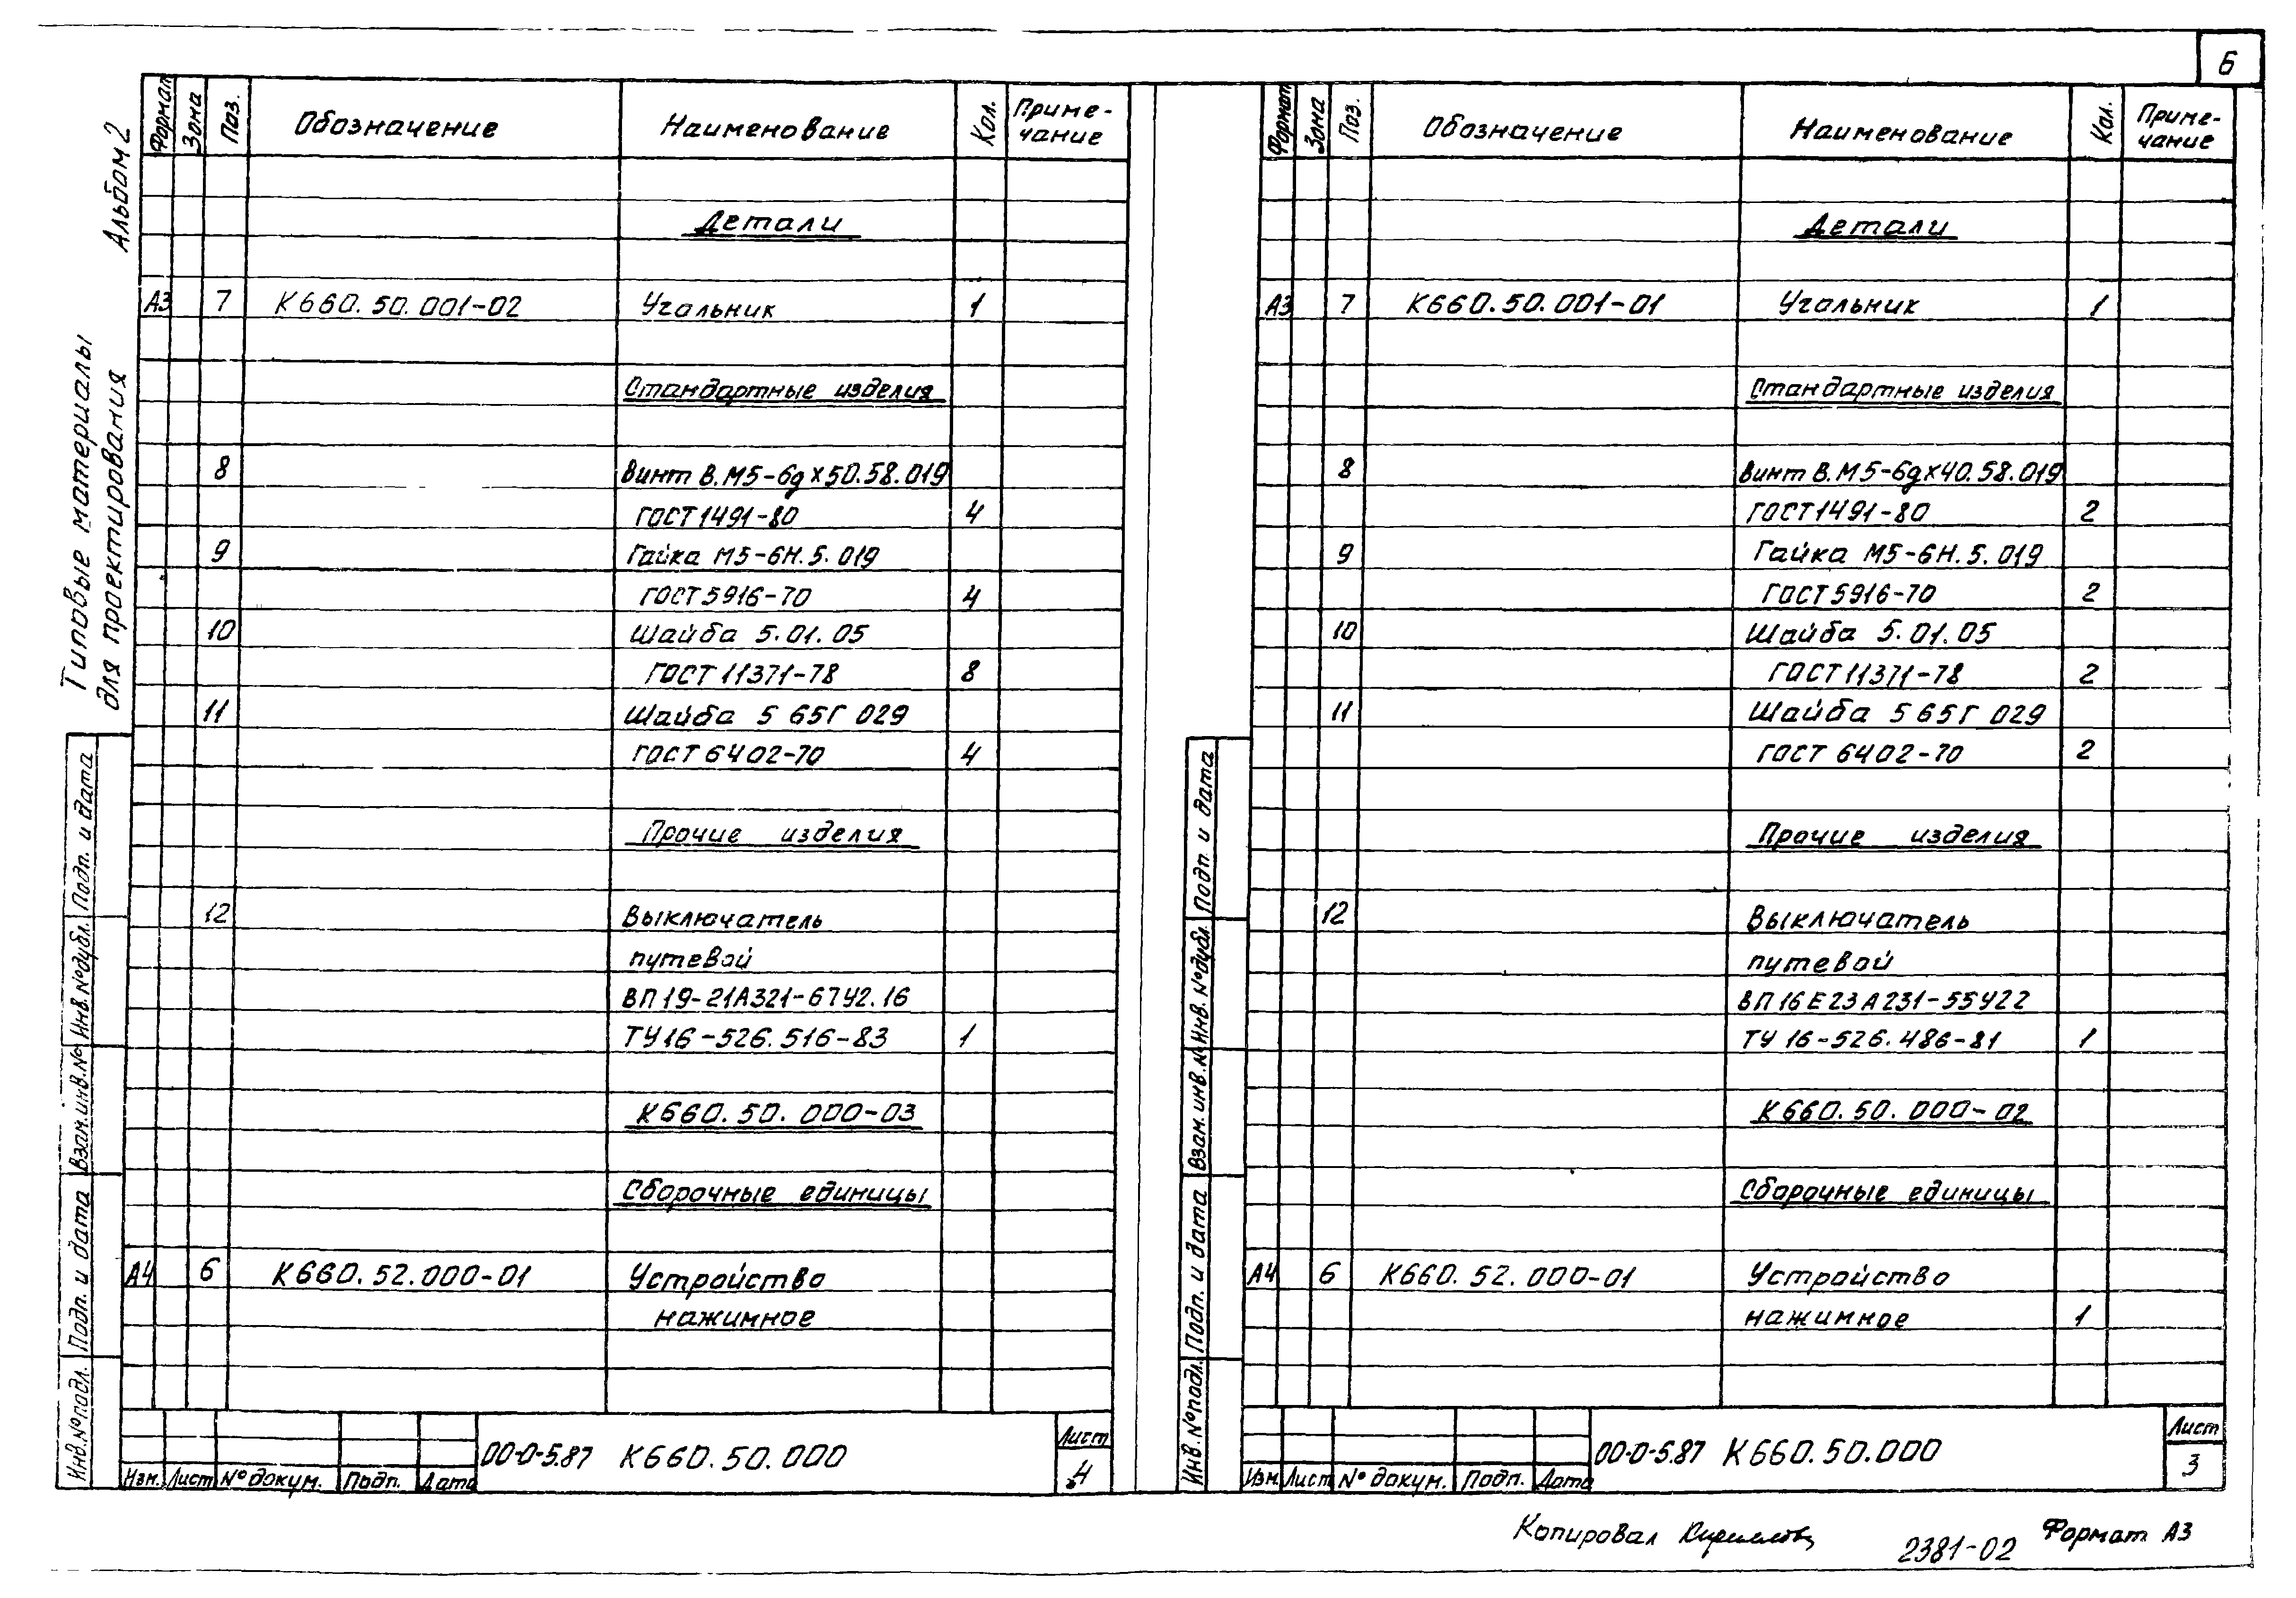 6
Альбом 2
Типовые материалы
для проектирования
Формат Зона Поз. Обозначение Наименование Кол. Приме-
чание
Детали
А3 7 К660.50.001-02 Угольник 1
Стандартные изделия
8 Винт В.М5-6gх50.58.019
ГОСТ 1491-80 4
9 Гайка М5-6Н.5.019
ГОСТ 5916-70 4
10 Шайба 5.01.05
ГОСТ 11371-78 8
11 Шайба 5 65Г 029
ГОСТ 6402-70 4
Прочие изделия
12 Выключатель
путевой
ВП19-21А321-67У2.16
ТУ16-526.516-83 1
К660.50.000-03
Сборочные единицы
А4 6 К660.52.000-01 Устройство
нажимное
Инв.№подл. Подп. и дата Взам.инв.№ Инв.№дубл. Подп. и дата
Изм. Лист № докум. Подп. Дата
00-0-5.87 К660.50.000
Лист
4
Формат Зона Поз. Обозначение Наименование Кол. Приме-
чание
Детали
А3 7 К660.50.001-01 Угольник 1
Стандартные изделия
8 Винт В.М5-6gх40.58.019
ГОСТ 1491-80 2
9 Гайка М5-6Н.5.019
ГОСТ 5916-70 2
10 Шайба 5.01.05
ГОСТ 11371-78 2
11 Шайба 5 65Г 029
ГОСТ 6402-70 2
Прочие изделия
12 Выключатель
путевой
ВП16Е23А231-55У22
ТУ 16-526.486-81 1
К660.50.000-02
Сборочные единицы
А4 6 К660.52.000-01 Устройство
нажимное 1
Инв.№подл. Подп. и дата Взам.инв.№ Инв.№дубл. Подп. и дата
Изм. Лист № докум. Подп. Дата
00-0-5.87 К660.50.000
Лист
3
Копировал
2381-02
Формат А3